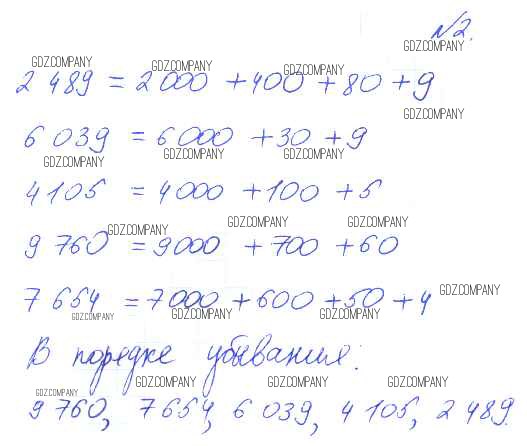 №2.
GDZ.COMPANY
GDZ.COMPANY GDZ.COMPANY GDZ.COMPANY
2 489 = 2 000 + 400 + 80 + 9
GDZ.COMPANY
6 039 = 6 000 + 30 + 9
GDZ.COMPANY GDZ.COMPANY GDZ.COMPANY
4 105 = 4 000 + 100 + 5
GDZ.COMPANY GDZ.COMPANY GDZ.COMPANY
9 760 = 9000 + 700 + 60
7 654 = 7 000 + 600 + 50 + 4 GDZ.COMPANY
GDZ.COMPANY GDZ.COMPANY GDZ.COMPANY
В порядке убывания:
GDZ.COMPANY GDZ.COMPANY GDZ.COMPANY GDZ.COMPANY
9 760, 7 654, 6 039, 4 105, 2 489.